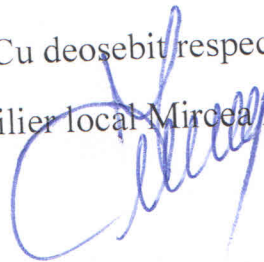 Cu deosebit respec
ilier local Mircea